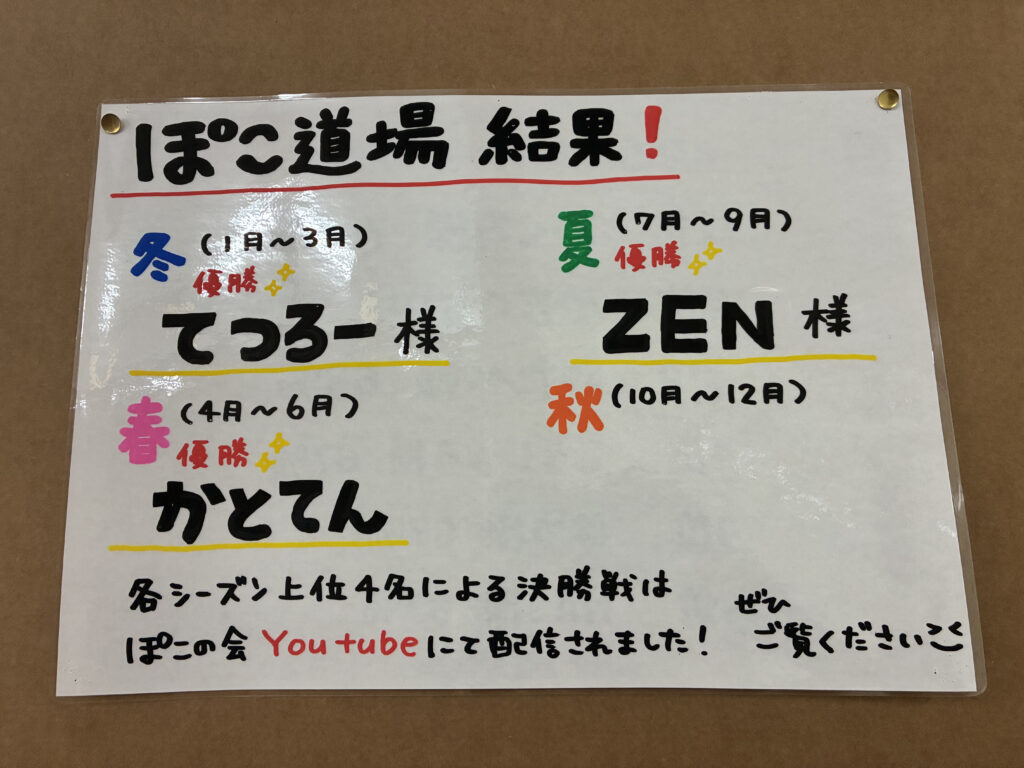 ぽこ道場 結果!
冬 (1月～3月)
優勝
てつろー 様
春 (4月～6月)
優勝
かとてん
夏 (7月～9月)
優勝
ZEN 様
秋 (10月～12月)
各シーズン上位4名による決勝戦は
ぽこの会 YouTubeにて配信されました!
ぜひ
ご覧ください